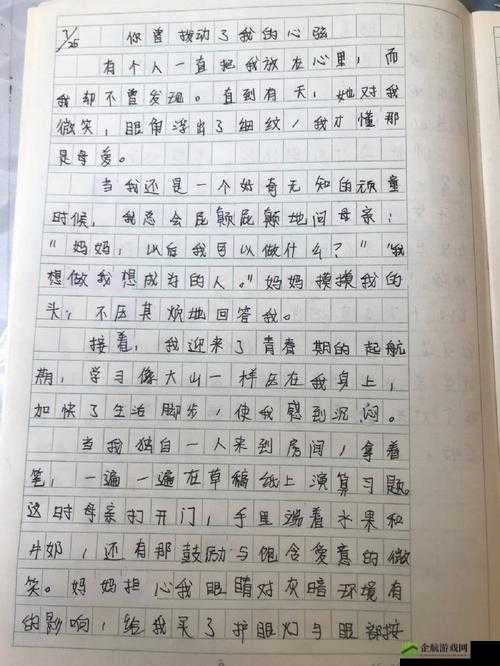 7/25 你曾拨动了我的心弦
有个人一直把我放在心里,而
我却不曾发现。直到有天,她对我
微笑,眼角浮出了细纹,我才懂那
是母爱。
当我还是一个好奇无知的顽童
时候,我总会屁颠屁颠地问母亲:
“妈妈,以后我可以做什么?”“我
想做我想成为的人。”妈妈摸摸我的
头,不厌其烦地回答我。
接着,我迎来了青春期的起航
期,学习像大山一样压在我身上,
加快了生活脚步,使我感到沉闷。
当我独自一人来到房间,拿着
笔,一遍一遍在草稿纸上演算习题。
这时母亲打开门,手里端着水果和
牛奶,还有那鼓励与饱含爱意的微
笑。妈妈担心我眼睛对灰暗环境有
的影响,给我买了护眼灯与眼部按
企航游戏网